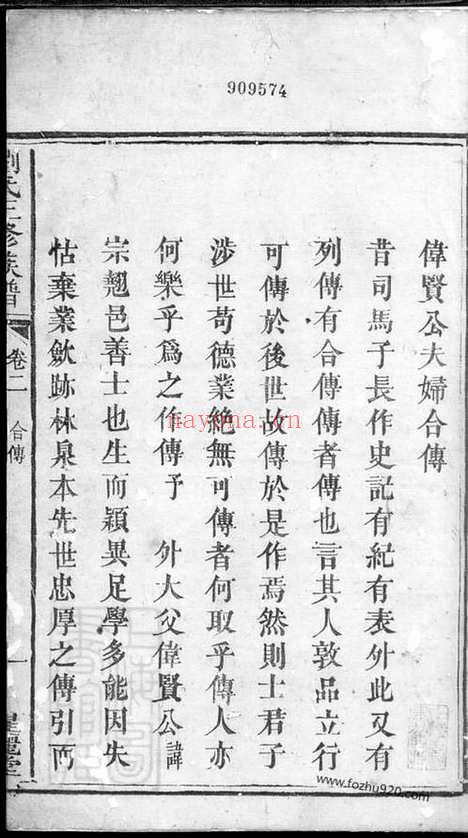 909574
偉賢公夫婦合傳
昔司馬子長作史記有紀有表外此又有
列傳有合傳傳者傳也言其人敦品立行
可傳於後世故傳於是作焉然則士君子
涉世苟德業絶無可傳者何取乎傳人亦
何樂乎爲之作傳予 外大父偉賢公諱
宗翹邑善士也生而穎異足學多能因失
怙棄業歛跡林泉本先世忠厚之傳引而
劉氏三修族譜
卷二
合傳
一
nayona.cn
www.fozhu920.com